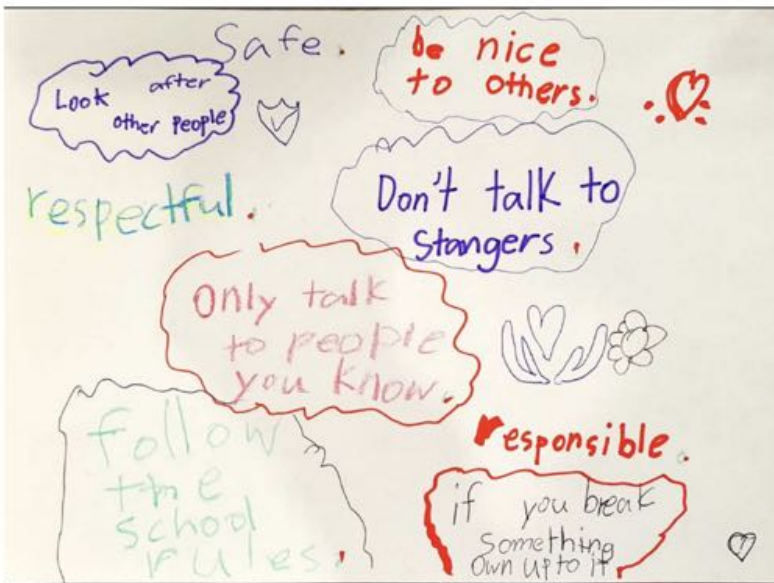 Safe.
Look after
other people
be nice
to others.
respectful.
Don't talk to
Stangers.
Only talk
to people
you know.
follow
the
school
rules.
responsible.
if you break
something
own up to it